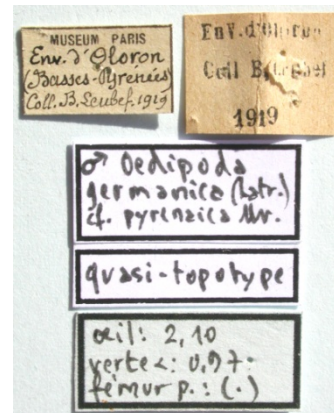 MUSEUM PARIS
Env. d'Oloron
(Basses-Pyrénées)
Coll. B. Seubef. 1919
Env. d'Oloron
Coll
1919
♂ Oedipoda
germanica (Latr.)
cf. pyrenaica
quasi-topotype
œil: 2,10
vertex: 0,97
fémur p.: (.)